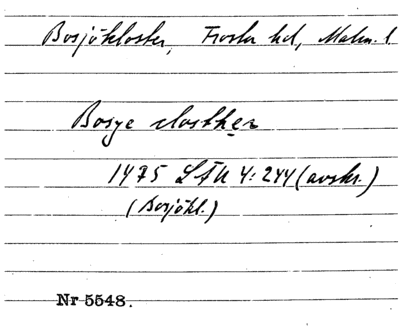 Bosjökloster, Frosta hd, Malm. l.
Bosye closther
1475 LÅU 4:244 (avskr.)
(Bosjökl.)
Nr 5548.